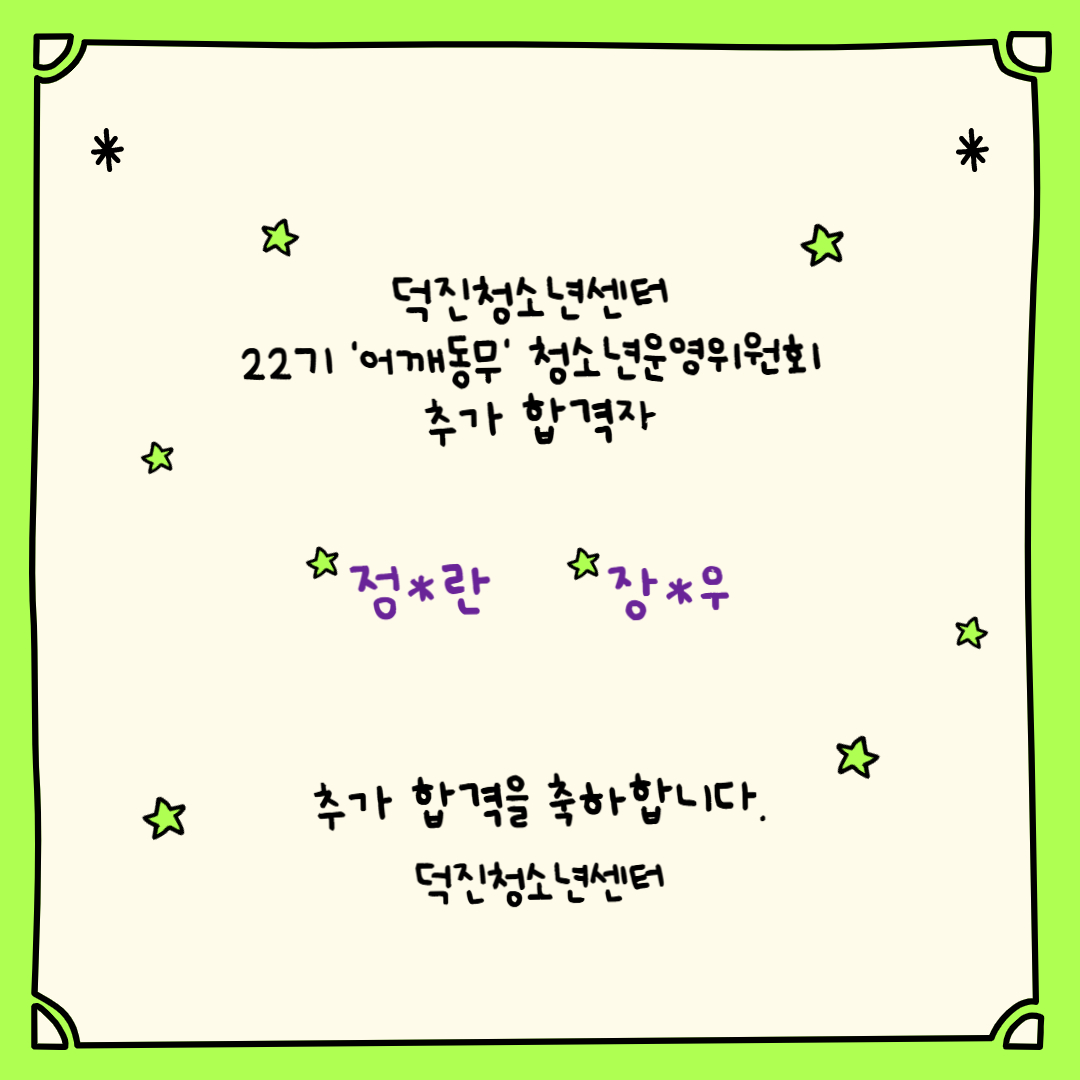 덕진청소년센터
22기 '어깨동무' 청소년운영위원회
추가 합격자
점*란 장*우
추가 합격을 축하합니다.
덕진청소년센터